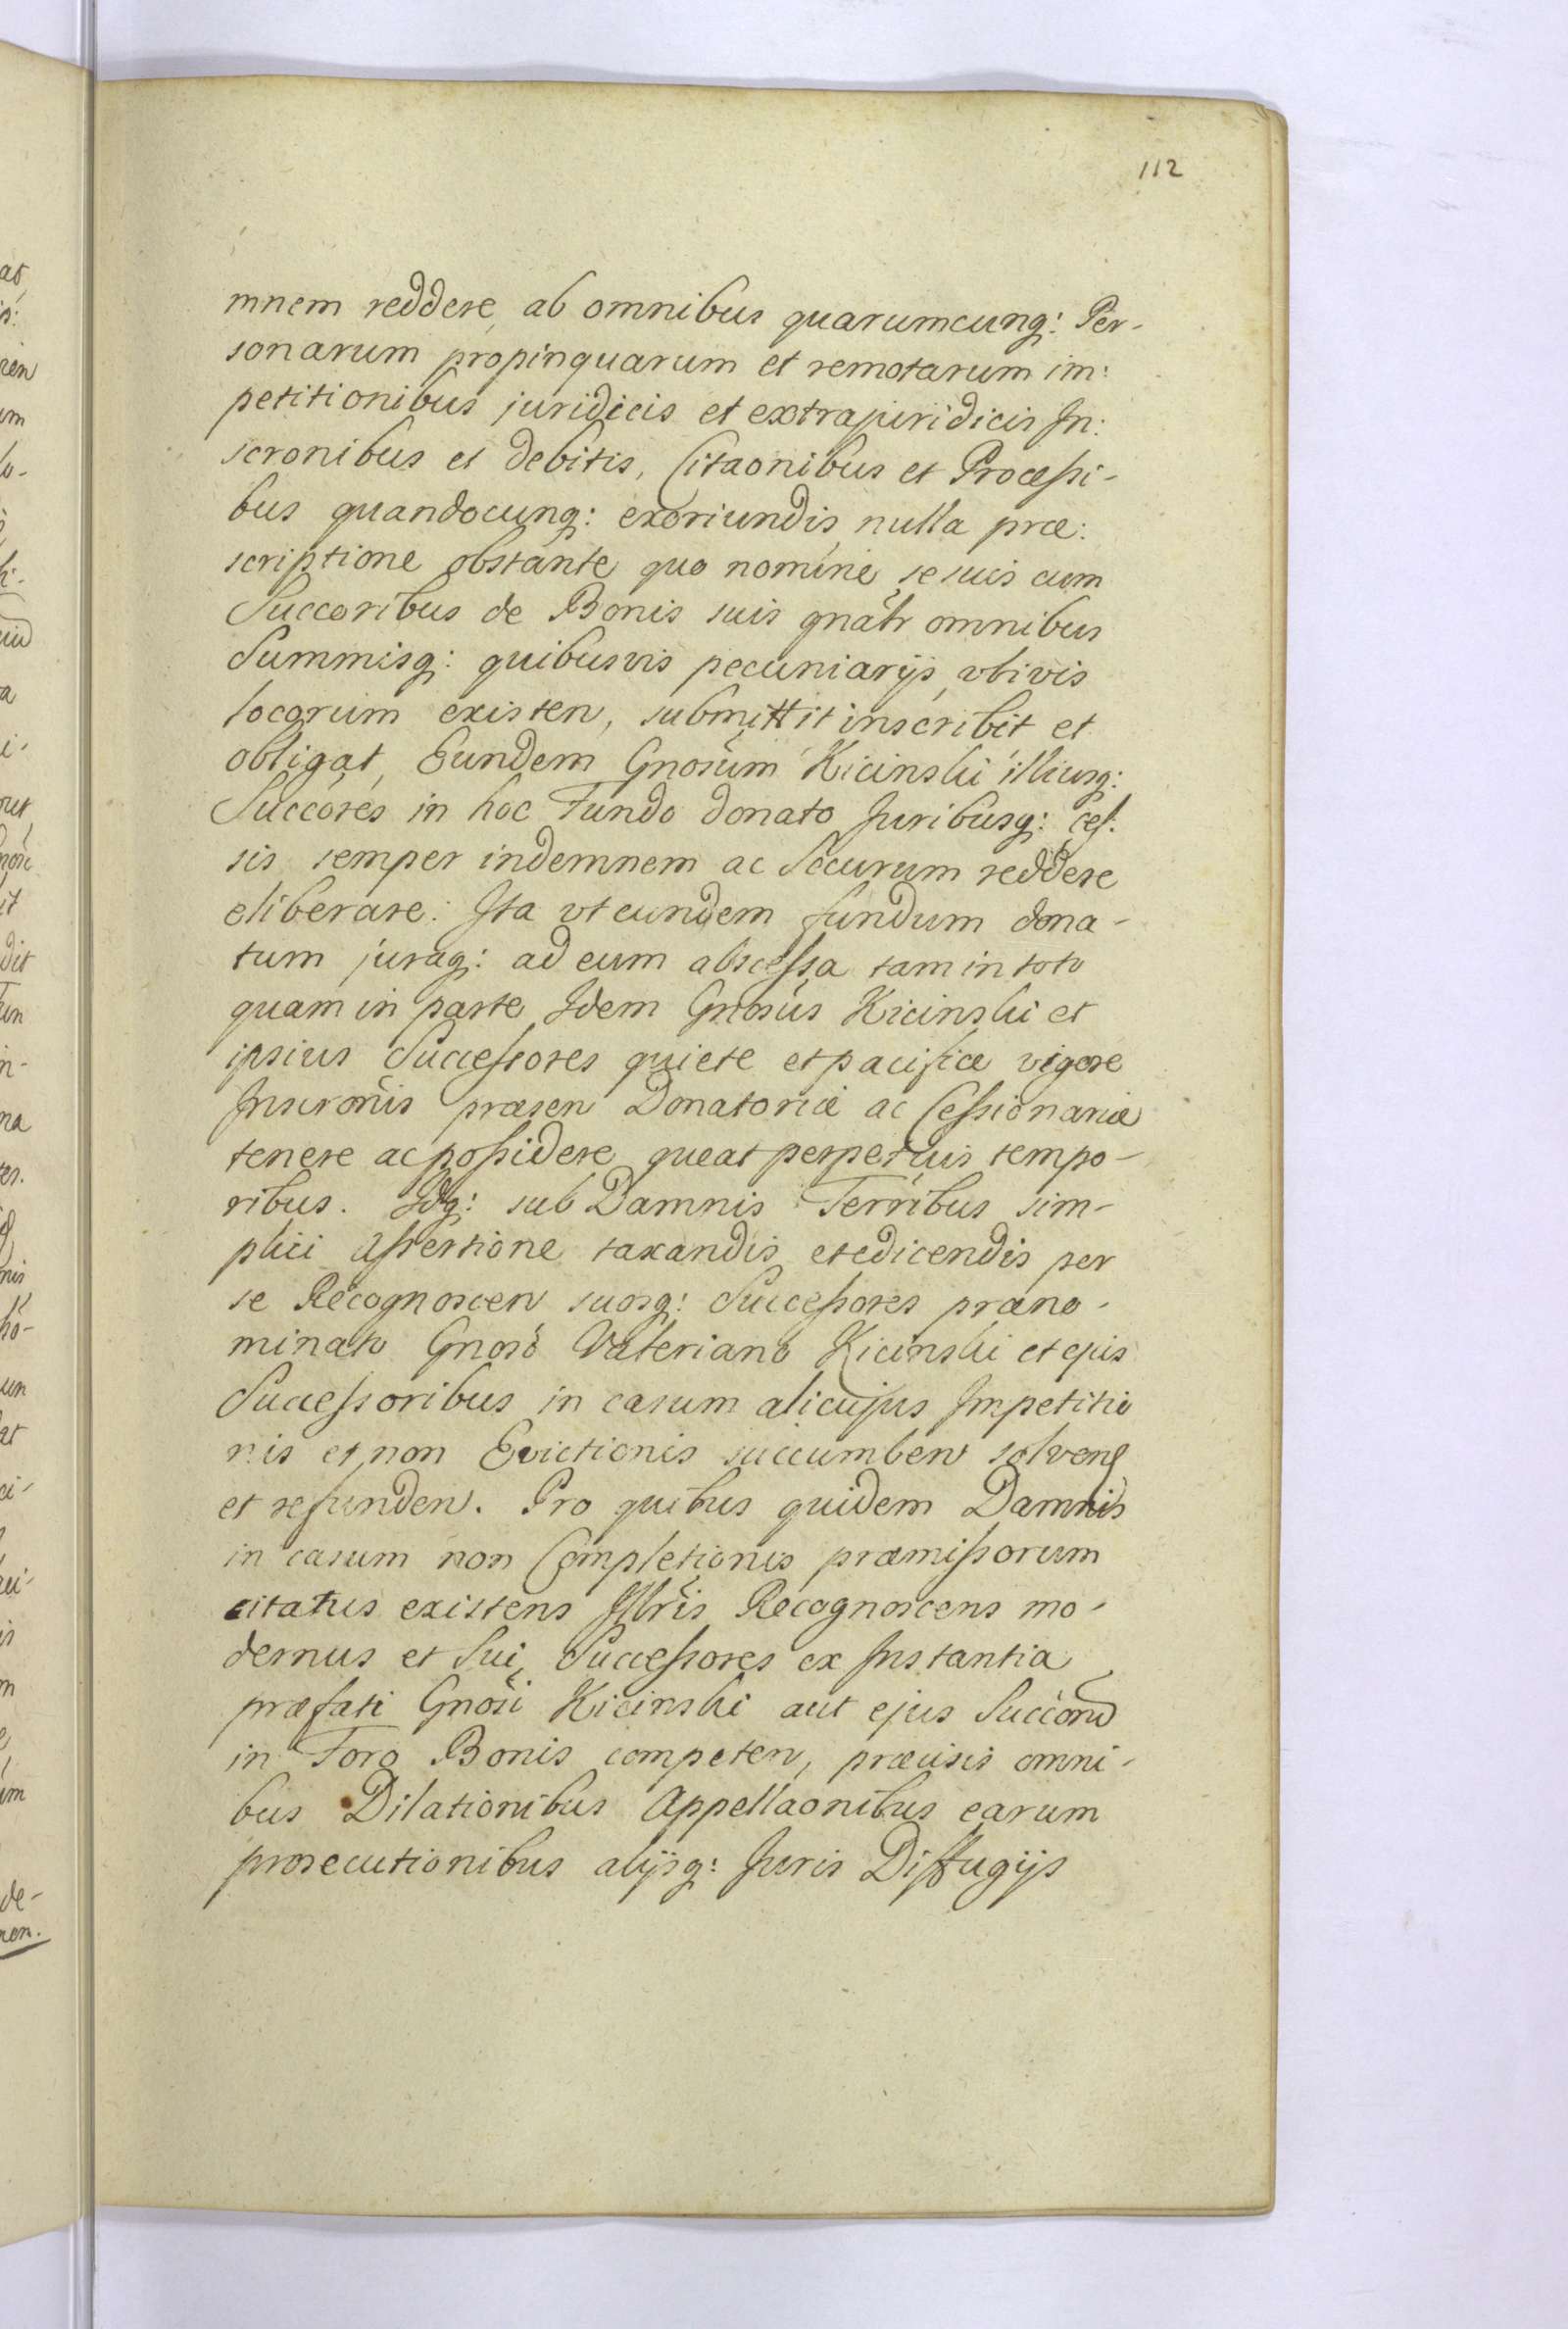 112
mnem reddere, ab omnibus quarumcunq: Per-
sonarum propinquarum et remotarum im:
petitionibus juridicis et extrajuridicis In:
scronibus et debitis, Citaonibus et Processi-
bus quandocunq: exoriundis, nulla præ:
scriptione obstante, quo nomine, se suis cum
Succoribus de Bonis suis gnalr omnibus
Summisq: quibusvis pecuniarijs, vbivis
locorum existen, submittit inscribit et
obligat, Eundem Gnosum Kicinski illiusq:
Succores in hoc Fundo donato Juribusq: ces:
sis semper indemnem ac Securum reddere
eliberare: Ita vt eundem fundum dona-
tum juraq: ad eum abscessa tam in toto
quam in parte, Idem Gnosus Kicinski et
ipsius Successores quiete et pacifice vigore
Inscronis præsen Donatoriæ ac Cessionariæ
tenere ac possidere queat perpetuis tempo-
ribus. Idq: sub Damnis Terribus sim-
plici assertione taxandis et edicendis per
se Recognoscen suosq: Successores præno-
minato Gnoso Valeriano Kicinski et ejus
Successoribus in casum alicujus Impetitio
nis et non Evictionis succumben solven
et refunden. Pro quibus quidem Damnis
in casum non Completionis præmissorum
citatus existens Illris Recognoscens mo-
dernus et Sui Successores ex Instantia
præfati Gnosi Kicinski aut ejus Succorum
in Foro Bonis competen, præcisis omni-
bus Dilationibus Appellaonibus earum
prosecutionibus alijsq: Juris Diffugijs